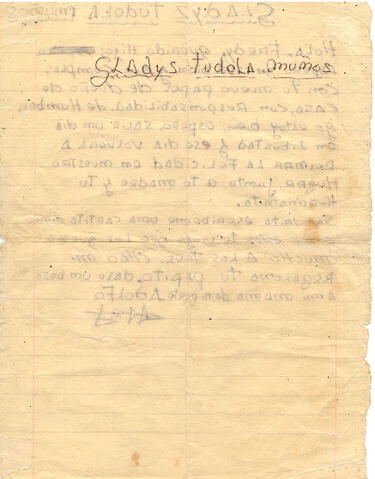 GLAdyZ TudeLA muños
HOLA, FREDY, QUERIDO Hijo:
GLAdys TudeLA muños
cumplas
Con Tu nuevo papel de dueño de
CASA, Con Responsabilidad de Hombre.
yo estoy bien, espero salir un dia
en Libertad y ese dia VOLVERA A
Reinar LA Felicidad en nuestro
HOGAR junto a tu madre y Tu
Hermanita.
escribame una cartita
mucho A Los TRES. CHAO mi
Regalona Tu papito. dale un beso
A mi mama de mi parte Adolfo